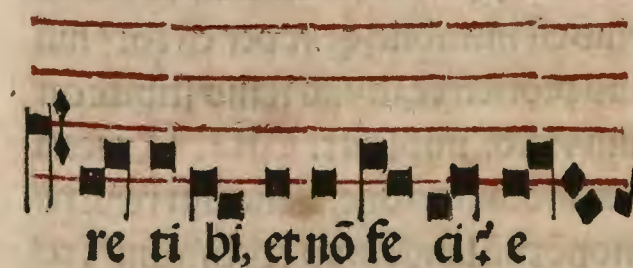 re ti bi, et nō fe ci⸫ e